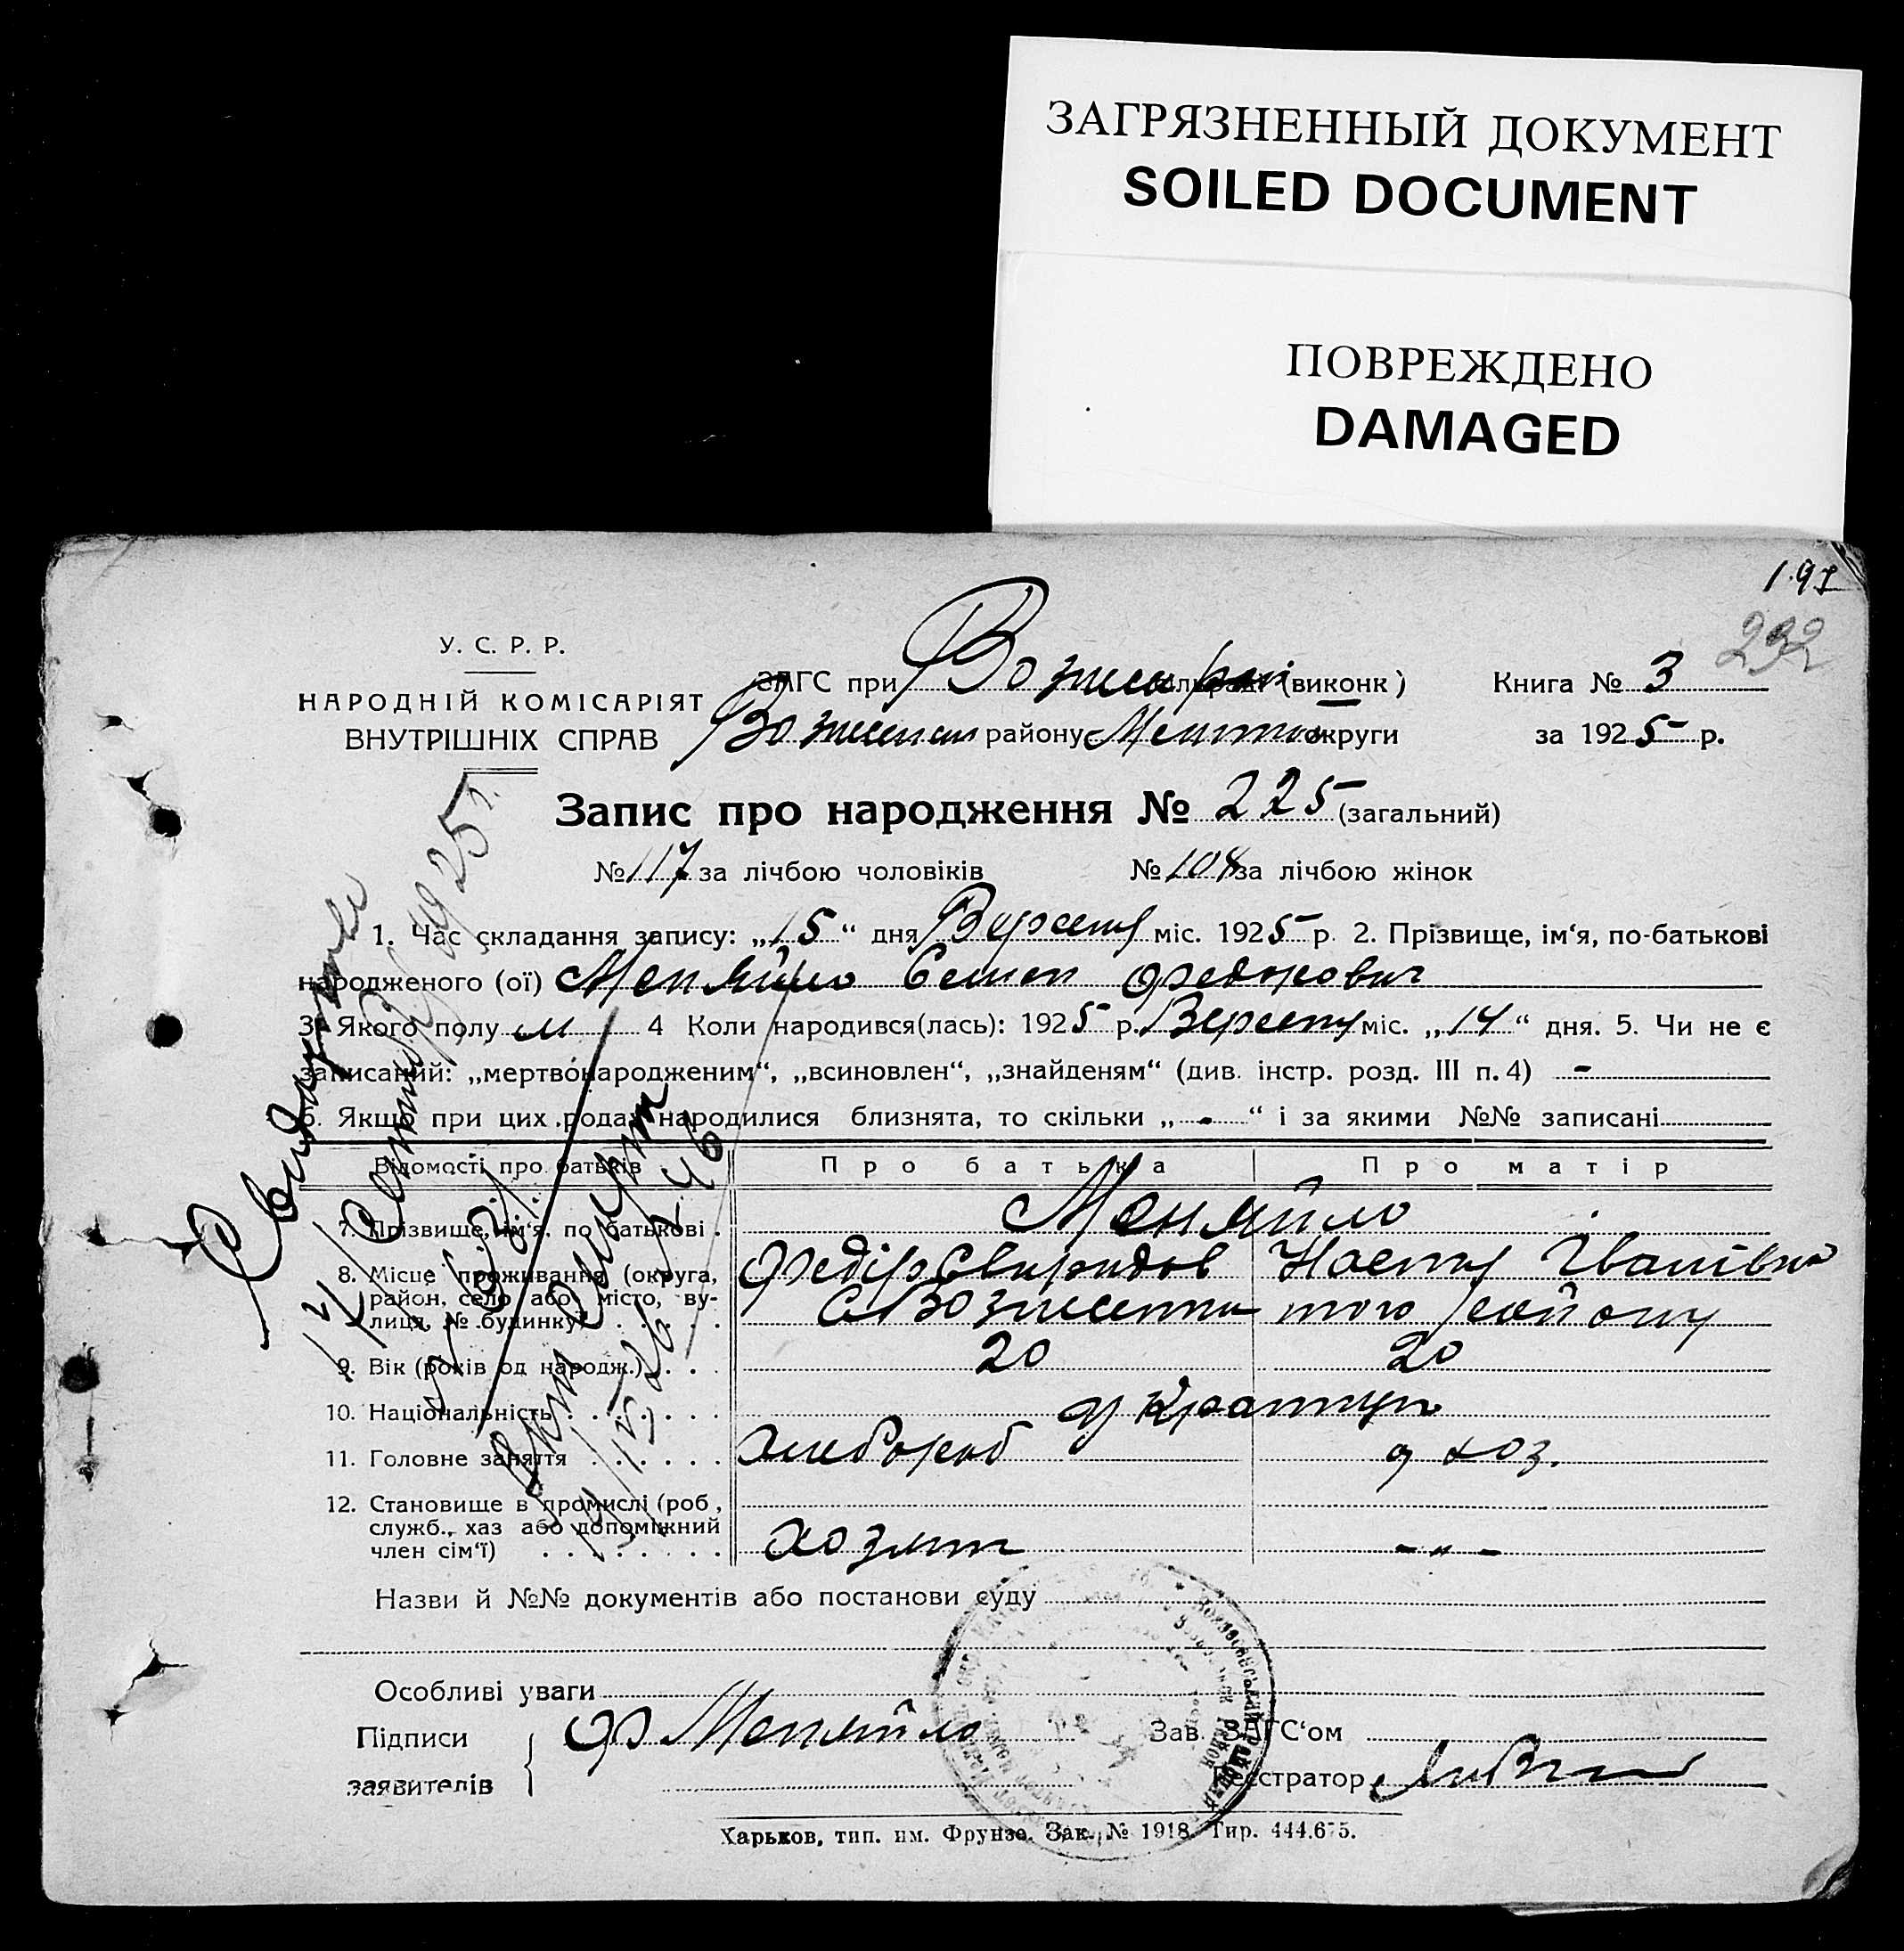 ЗАГРЯЗНЕННЫЙ ДОКУМЕНТ
SOILED DOCUMENT
ПОВРЕЖДЕНО
DAMAGED
197
232
У. С. Р. Р.
НАРОДНІЙ КОМІСАРІЯТ
ВНУТРІШНІХ СПРАВ
ЗАГС при (виконк)
району округи
Книга № 3
за 1925 р.
Запис про народження № 225 (загальний)
№ 117 за лічбою чоловіків № 108 за лічбою жінок
1. Час складання запису: „15“ дня міс. 1925 р. 2. Прізвище, ім‘я, по-батькові
народженого (ої) Меняйло Семен Федорович
3. Якого полу м 4 Коли народився(лась): 1925 р. міс. „14“ дня. 5. Чи не є
записаний: „мертвонародженим“, „всиновлен“, „знайденям“ (див. інстр. розд. III п. 4) -
6. Якщо при цих родах народилися близнята, то скільки „-“ і за якими №№ записані
Відомості про батьків Про батька Про матір
7. Прізвище, ім‘я, по батькові Меняйло
Федір Свиридов Настя Іванівна
8. Місце проживання (округа,
район, село або місто, ву-
лиця, № будинку) того району
9. Вік (років од народж.) 20 20
10. Національність
11. Головне заняття Хлебороб д хоз.
12. Становище в промислі (роб,
служб., хаз або допоміжний
член сім‘ї) хозяин -„-
Назви й №№ документів або постанови суду
Особливі уваги
Підписи
заявителів
Ф Меняйло
Зав. ЗАГС‘ом
Реєстратор
Харьков, тип. им. Фрунзе. Зак. № 1918. Тир. 444.675.